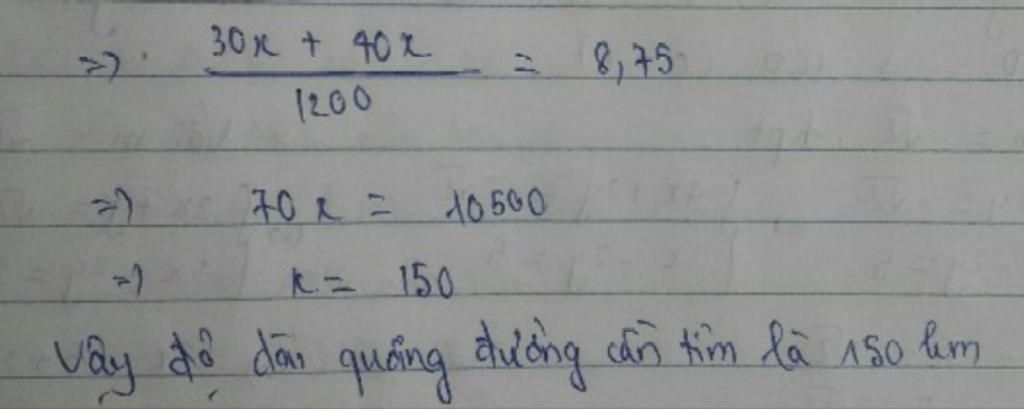 => 30x + 40x / 1200 = 8,75
=> 70x = 10500
=> x = 150
Vậy độ dài quãng đường cần tìm là 150 km